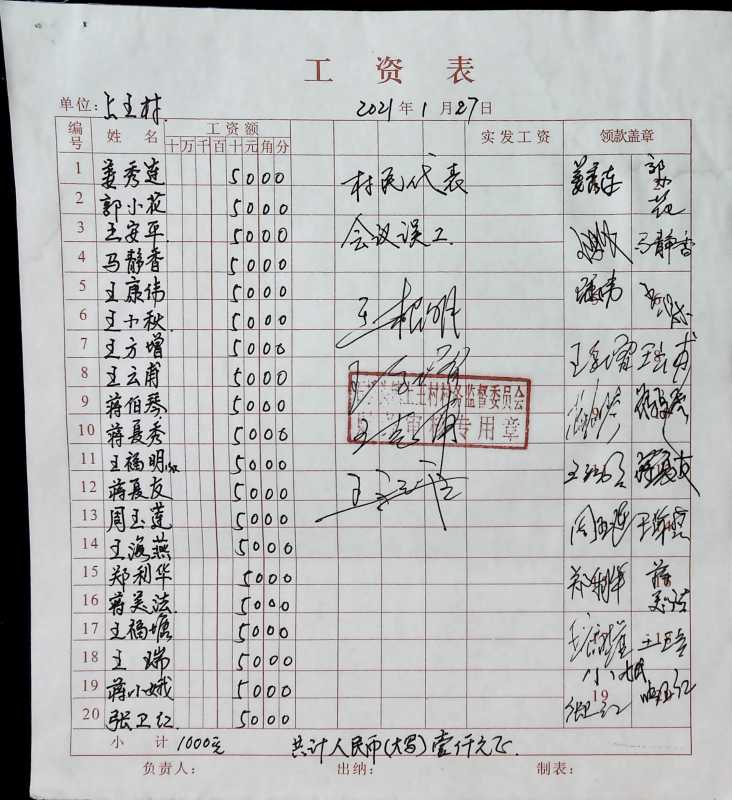 工资表
单位：上王村
2021年1月27日
编号 姓名 工资额 实发工资 领款盖章
十万千百十元角分
1 姜秀莲 5000 村民代表 姜秀莲 郭小花
2 郭小花 5000
3 王安平 5000 会议误工 马静香
4 马静香 5000
5 王康伟 5000
6 王小秋 5000 王根明
7 王方增 5000
8 王云甫 5000 王云甫
9 蒋伯琴 5000 上王村村务监督委员会
10 蒋夏秀 5000 审核专用章
11 王福明 5000 蒋夏友
12 蒋夏友 5000
13 周玉莲 5000 周玉莲 王海燕
14 王海燕 5000
15 郑利华 5000 郑利华 蒋美法
16 蒋美法 5000
17 王福塘 5000
18 王瑞 5000 小娥
19 蒋小娥 5000 19
20 张卫红 5000
小计 1000元 共计人民币(大写)壹仟元正.
负责人： 出纳： 制表：